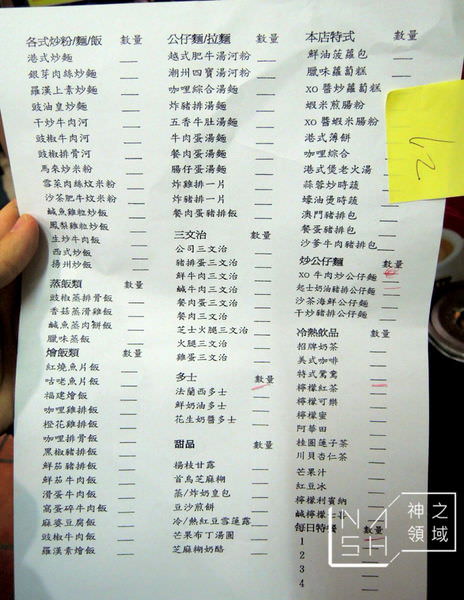 各式炒粉/麵/飯 數量
港式炒麵
銀芽肉絲炒麵
羅漢上素炒麵
豉油皇炒麵
干炒牛肉河
豉椒牛肉河
豉椒排骨河
馬來炒米粉
雪菜肉絲炆米粉
沙茶肥牛炆米粉
鹹魚雞粒炒飯
鳳梨雞粒炒飯
生炒牛肉飯
西式炒飯
揚州炒飯
蒸飯類 數量
豉椒蒸排骨飯
香菇蒸滑雞飯
鹹魚蒸肉餅飯
臘味蒸飯
燴飯類 數量
紅燒魚片飯
咕老魚片飯
福建燴飯
咖哩雞排飯
橙花雞排飯
咖哩排骨飯
黑椒豬排飯
鮮茄豬排飯
鮮茄牛肉飯
滑蛋牛肉飯
窩蛋碎牛肉飯
麻婆豆腐飯
豉椒牛肉飯
羅漢素燴飯
公仔麵/拉麵 數量
越式肥牛湯河粉
潮州四寶湯河粉
咖哩綜合湯麵
炸豬排湯麵
五香牛肚湯麵
牛肉蛋湯麵
餐肉蛋湯麵
腸仔蛋湯麵
炸雞排一片
炸豬排一片
餐肉蛋豬排飯
三文治 數量
公司三文治
豬排蛋三文治
鮮牛肉三文治
鹹牛肉三文治
餐肉蛋三文治
餐肉三文治
芝士火腿三文治
火腿三文治
雞蛋三文治
多士 數量
法蘭西多士
鮮奶油多士
花生奶醬多士
甜品 數量
楊枝甘露
首烏芝麻糊
蒸/炸奶皇包
豆沙煎餅
冷/熱紅豆雪蓮露
芒果布丁湯圓
芝麻糊奶酪
本店特式 數量
鮮油菠蘿包
臘味蘿蔔糕
xo 醬炒蘿蔔糕
蝦米煎腸粉
xo 醬蝦米腸粉
港式薄餅
咖哩綜合
港式煲老火湯
蒜蓉炒時蔬
蠔油燙時蔬
澳門豬排包
餐蛋豬排包
沙爹牛肉豬排包
炒公仔麵 數量
xo 牛肉炒公仔麵
起士奶油豬排公仔麵
沙茶海鮮公仔麵
干炒豬排公仔麵
冷熱飲品 數量
招牌奶茶
美式咖啡
特式鴛鴦
檸檬紅茶
檸檬可樂
檸檬蜜
阿華田
桂圓蓮子茶
川貝杏仁茶
芒果汁
紅豆冰
檸檬利賓納
鹹檸檬七
每日特餐 數量
1
2
3
4
62
N
SH
神之
領域